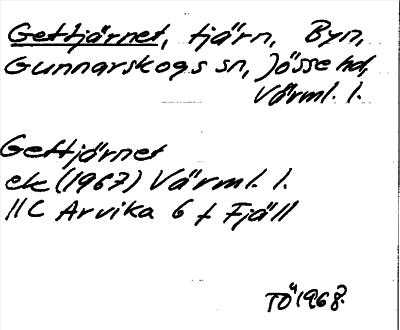 Gettjärnet, tjärn, Byn,
Gunnarskogs sn, Jösse hd,
Värml. l.
Gettjärnet
ek (1967) Värml. l.
11C Arvika 6 f Fjäll
TÖ 1968.